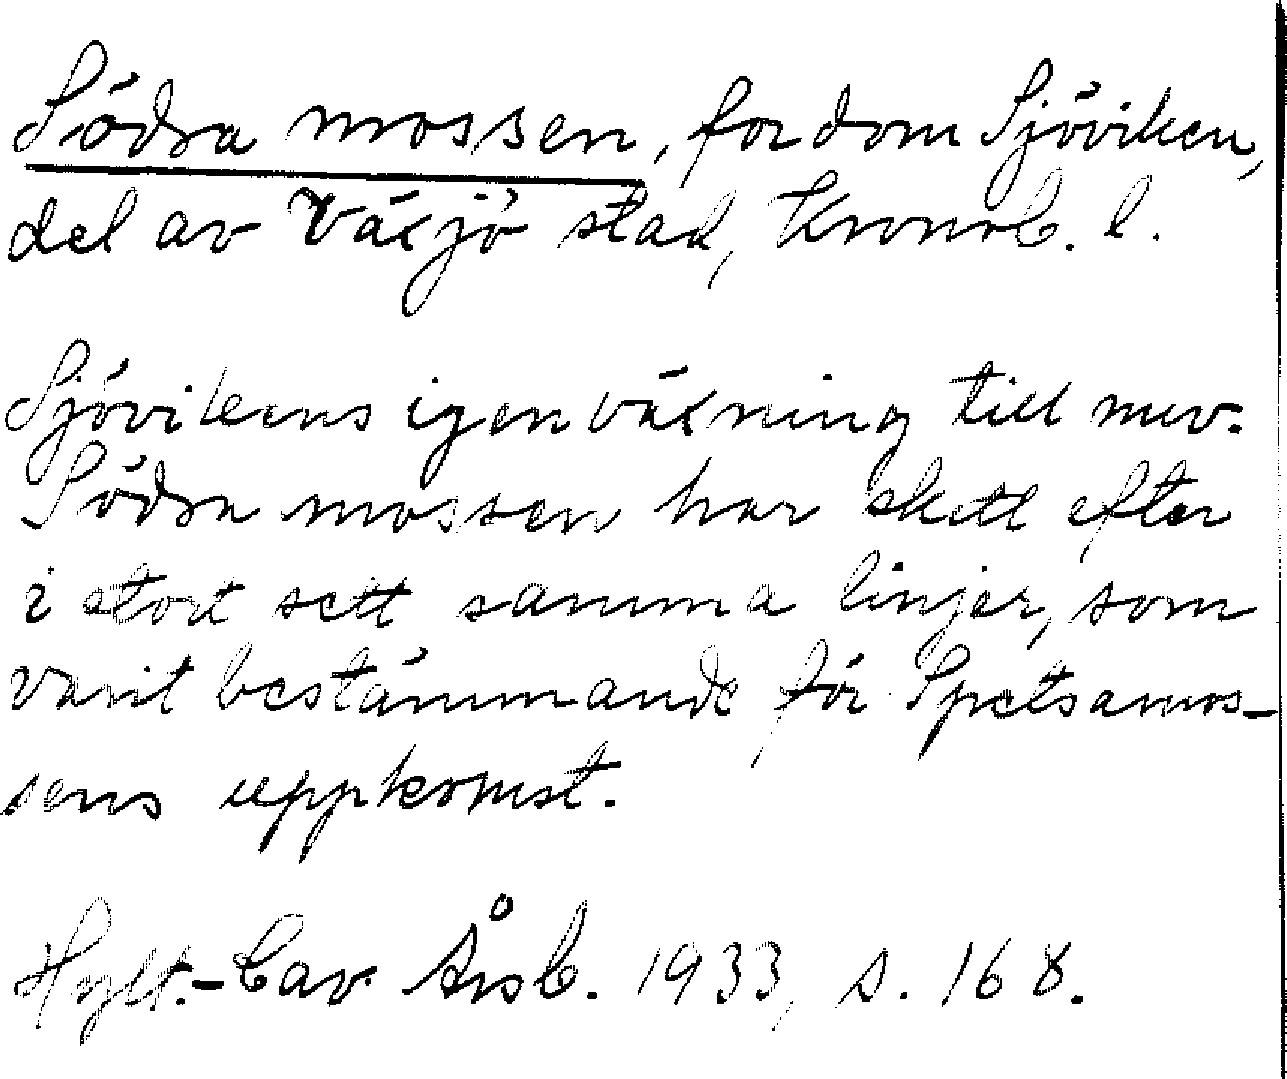 Södra mossen, fordom Sjöviken,
del av Växjö stad, Kronob. l.
Sjövikens igenväxning till nuv.
Södra mossen har skett efter
i stort sett samma linjer, som
varit bestämmande för Spetsamos-
sens uppkomst.
Hylt.-Cav. Årsb. 1933, s. 168.